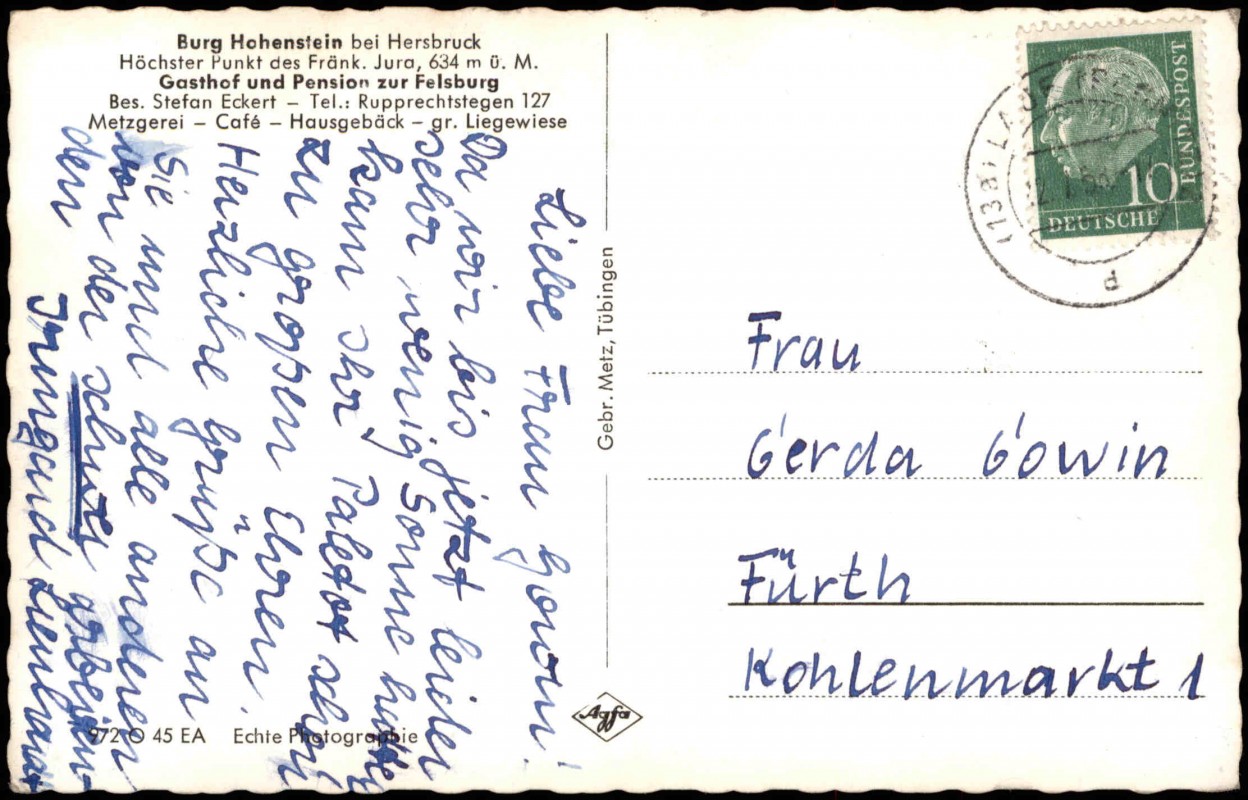 Burg Hohenstein bei Hersbruck
Höchster Punkt des Fränk. Jura, 634 m ü. M.
Gasthof und Pension zur Felsburg
Bes. Stefan Eckert – Tel.: Rupprechtstegen 127
Metzgerei – Café – Hausgebäck – gr. Liegewiese
Liebe Frau Gowin!
Da wir bis jetzt leider
sehr wenig Sonne hatten
kam ihr Paletot sehr
zu großen Ehren.
Herzliche Grüße an
Sie und alle anderen
von der schwer arbeiten-
den Irmgard
972 O 45 EA Echte Photographie
Gebr. Metz, Tübingen
Agfa
DEUTSCHE
BUNDESPOST
10
(13a) LAUF
d
Frau
Gerda Gowin
Fürth
Kohlenmarkt 1